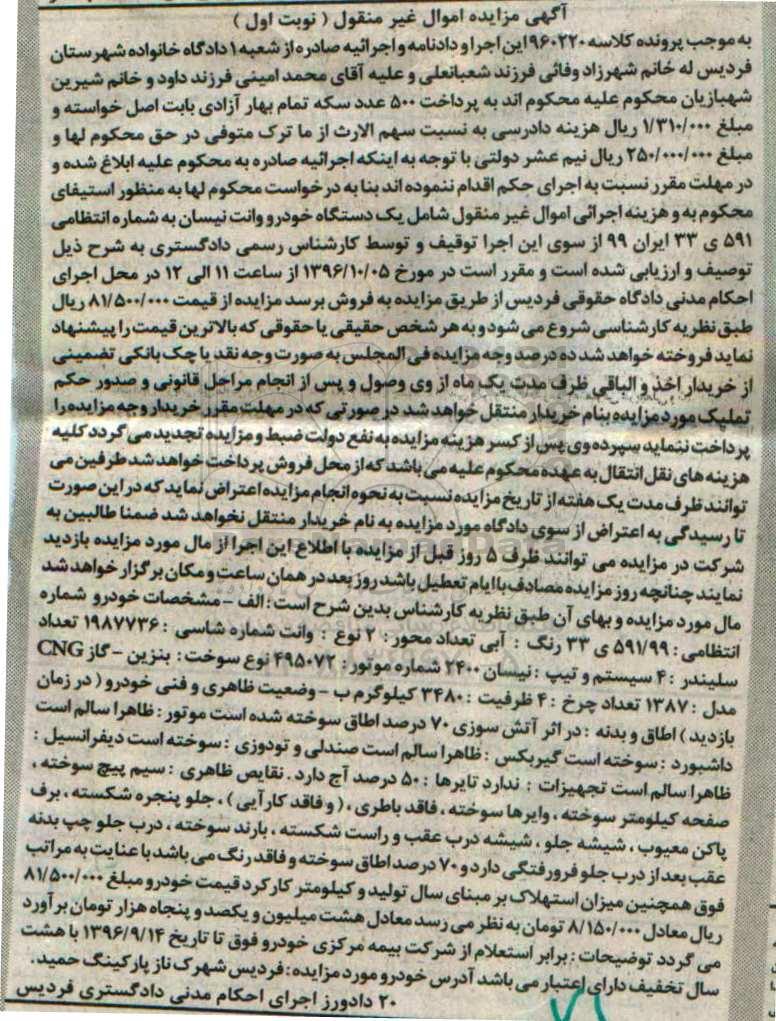 آگهی مزایده اموال غیر منقول ( نوبت اول )
به موجب پرونده کلاسه ۹۶۰۲۲۰ این اجرا و دادنامه و اجرائیه صادره از شعبه ۱ دادگاه خانواده شهرستان
فردیس له خانم شهرزاد وفائی فرزند شعبانعلی و علیه آقای محمد امینی فرزند داود و خانم شیرین
شهبازیان محکوم علیه محکوم اند به پرداخت ۵۰۰ عدد سکه تمام بهار آزادی بابت اصل خواسته و
مبلغ ۱/۳۱۰/۰۰۰ ریال هزینه دادرسی به نسبت سهم الارث از ما ترک متوفی در حق محکوم لها و
مبلغ ۲۵۰/۰۰۰/۰۰۰ ریال نیم عشر دولتی با توجه به اینکه اجرائیه صادره به محکوم علیه ابلاغ شده و
در مهلت مقرر نسبت به اجرای حکم اقدام ننموده اند بنا به درخواست محکوم لها به منظور استیفای
محکوم به و هزینه اجرائی اموال غیر منقول شامل یک دستگاه خودرو وانت نیسان به شماره انتظامی
۵۹۱ ی ۳۳ ایران ۹۹ از سوی این اجرا توقیف و توسط کارشناس رسمی دادگستری به شرح ذیل
توصیف و ارزیابی شده است و مقرر است در مورخ ۱۳۹۶/۱۰/۰۵ از ساعت ۱۱ الی ۱۲ در محل اجرای
احکام مدنی دادگاه حقوقی فردیس از طریق مزایده به فروش برسد مزایده از قیمت ۸۱/۵۰۰/۰۰۰ ریال
طبق نظریه کارشناسی شروع می شود و به هر شخص حقیقی یا حقوقی که بالاترین قیمت را پیشنهاد
نماید فروخته خواهد شد ده درصد وجه مزایده فی المجلس به صورت وجه نقد یا چک بانکی تضمینی
از خریدار اخذ و الباقی ظرف مدت یک ماه از وی وصول و پس از انجام مراحل قانونی و صدور حکم
تملیک مورد مزایده بنام خریدار منتقل خواهد شد در صورتی که در مهلت مقرر خریدار وجه مزایده را
پرداخت ننماید سپرده وی پس از کسر هزینه مزایده به نفع دولت ضبط و مزایده تجدید می گردد کلیه
هزینه های نقل انتقال به عهده محکوم علیه می باشد که از محل فروش پرداخت خواهد شد طرفین می
توانند ظرف مدت یک هفته از تاریخ مزایده نسبت به نحوه انجام مزایده اعتراض نماید که در این صورت
تا رسیدگی به اعتراض از سوی دادگاه مورد مزایده به نام خریدار منتقل نخواهد شد ضمنا طالبین به
شرکت در مزایده می توانند ظرف ۵ روز قبل از مزایده با اطلاع این اجرا از مال مورد مزایده بازدید
نمایند چنانچه روز مزایده مصادف با ایام تعطیل باشد روز بعد در همان ساعت و مکان برگزار خواهد شد
مال مورد مزایده و بهای آن طبق نظریه کارشناس بدین شرح است : الف - مشخصات خودرو شماره
انتظامی : ۵۹۱/۹۹ ی ۳۳ رنگ : آبی تعداد محور : ۲ نوع : وانت شماره شاسی : ۱۹۸۷۷۳۶ تعداد
سلیندر : ۴ سیستم و تیپ : نیسان ۲۴۰۰ شماره موتور : ۴۹۵۰۷۲ نوع سوخت : بنزین - گاز CNG
مدل : ۱۳۸۷ تعداد چرخ : ۴ ظرفیت : ۳۴۸۰ کیلوگرم ب - وضعیت ظاهری و فنی خودرو ( در زمان
بازدید ) اطاق و بدنه : در اثر آتش سوزی ۷۰ درصد اطاق سوخته شده است موتور : ظاهرا سالم است
داشبورد : سوخته است گیربکس : ظاهرا سالم است صندلی و تودوزی : سوخته است دیفرانسیل :
ظاهرا سالم است تجهیزات : ندارد تایرها : ۵۰ درصد آج دارد . نقایص ظاهری : سیم پیچ سوخته ،
صفحه کیلومتر سوخته ، وایرها سوخته ، فاقد باطری ، ( و فاقد کارآیی ) ، جلو پنجره شکسته ، برف
پاکن معیوب ، شیشه جلو ، شیشه درب عقب و راست شکسته ، باربند سوخته ، درب جلو چپ بدنه
عقب بعد از درب جلو فرورفتگی دارد و ۷۰ درصد اطاق سوخته و فاقد رنگ می باشد با عنایت به مراتب
فوق همچنین میزان استهلاک بر مبنای سال تولید و کیلومتر کارکرد قیمت خودرو مبلغ ۸۱/۵۰۰/۰۰۰
ریال معادل ۸/۱۵۰/۰۰۰ تومان به نظر می رسد معادل هشت میلیون و یکصد و پنجاه هزار تومان برآورد
می گردد توضیحات : برابر استعلام از شرکت بیمه مرکزی خودرو فوق تا تاریخ ۱۳۹۶/۹/۱۴ با هشت
سال تخفیف دارای اعتبار می باشد آدرس خودرو مورد مزایده : فردیس شهرک ناز پارکینگ حمید .
۲۰ دادورز اجرای احکام مدنی دادگستری فردیس